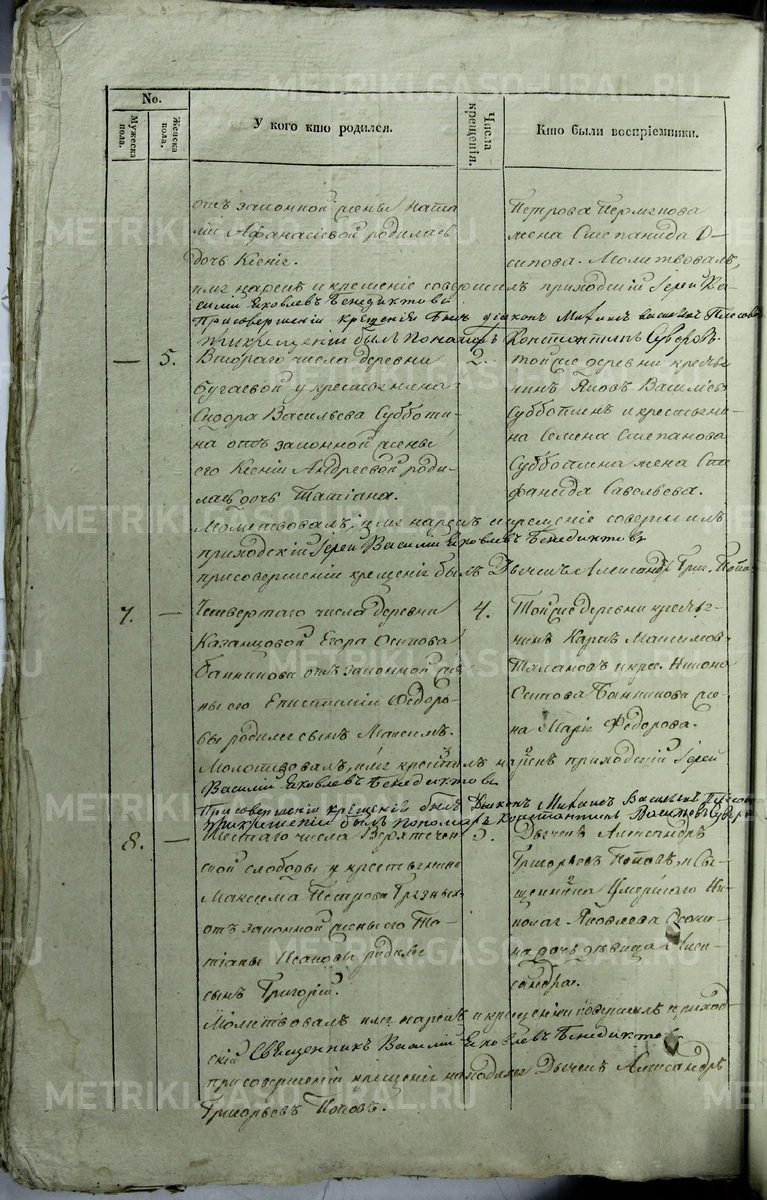 No.
Мужеска пола.
Женска пола.
У кого кто родился.
Числа крещенія.
Кто были воспріемники.
отъ законной жены Ната
ліи Афанасіевой родилась
дочь Ксенія.
Петрова
жена Степанида О-
сипова. Молитвовалъ,
имя нарекъ и крещеніе совершилъ приходскій Іерей Ва-
силій Яковлевъ Бенедиктовъ
При совершеніи крещенія былъ діаконъ Михаилъ Васильевъ
При крещеніи былъ пономарь Константинъ Суворовъ.
— 5. Втораго числа деревни
Бугаевой у крестьянина
Сидора Васильева Субботи-
на отъ законной жены
его Ксеніи Андреевой роди-
лась дочь Татіана.
2. Тойже деревни крестья
нинъ Яковъ Васильевъ
Субботинъ и крестьяни-
на Семена Степанова
Субботина жена Сте
фанида Савельева.
Молитвовалъ, имя нарекъ и крещеніе совершилъ
приходскій Іерей Василій Яковлевъ Бенедиктовъ
при совершеніи крещенія былъ Дьячекъ Александръ Григ. Попо
7. — Четвертаго числа деревни
Казанцовой Егора Осипова
Банникова отъ законной же
ны его Епистиміи Федоро-
вы родился сынъ Максимъ.
4. Тойже деревни крестья
нинъ Карпъ Максимовъ
и крес.
Осипова Банникова же
на Марія Федорова.
Молитвовалъ, имя крестилъ нарекъ приходскій Іерей
Василій Яковлевъ Бенедиктовъ
При совершеніи крещенія былъ Діаконъ Михаилъ Васильевъ
При крещеніи былъ пономарь Константинъ Васильевъ
8. — Шестаго числа Верхтечен
ской слободы у крестьянина
Максима Петрова Грязныхъ
отъ законной жены его Та-
тіаны Исаковы родился
сынъ Григорій.
Дьячекъ Александръ
Григорьевъ Поповъ, и Свя
щенника Умершаго Ни
колая Яковлева
на дочь девица Алек
сандра.
Молитвовалъ имя нарекъ и крещеніе совершилъ приход
скій Священникъ Василій Яковлевъ Бенедиктовъ
при совершеніи крещенія находился Дьячекъ Александръ
Григорьевъ Поповъ.
METRIKI.GASO-URAL.RU